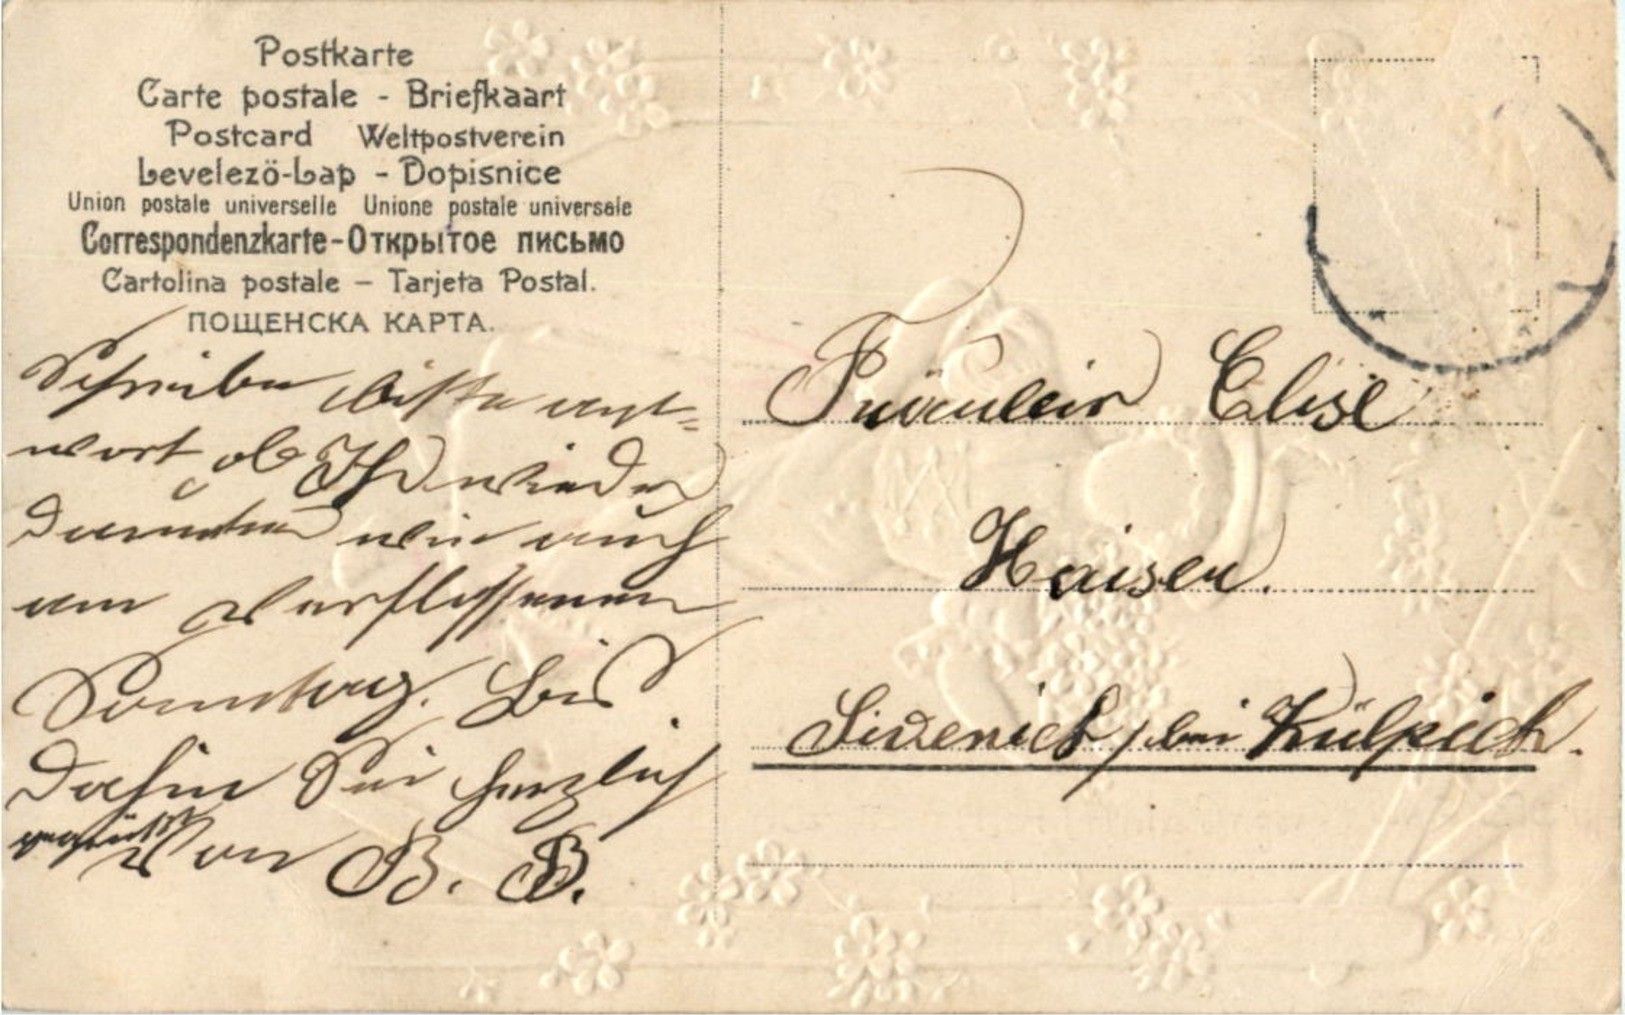 Postkarte
Carte postale - Briefkaart
Postcard Weltpostverein
Levelezö-Lap - Dopisnice
Union postale universelle Unione postale universale
Correspondenzkarte - Открытое письмо
Cartolina postale – Tarjeta Postal.
ПОЩЕНСКА КАРТА.
Schreiben bitte ant=
wort ob Ihr wieder
wie auch
am verflossenen
Sonntag. Bis
dahin Sei herzlich
gegrüßt
von B. B.
Fräulein Elise
Haiser.
Sivenich, bei Zülpich.